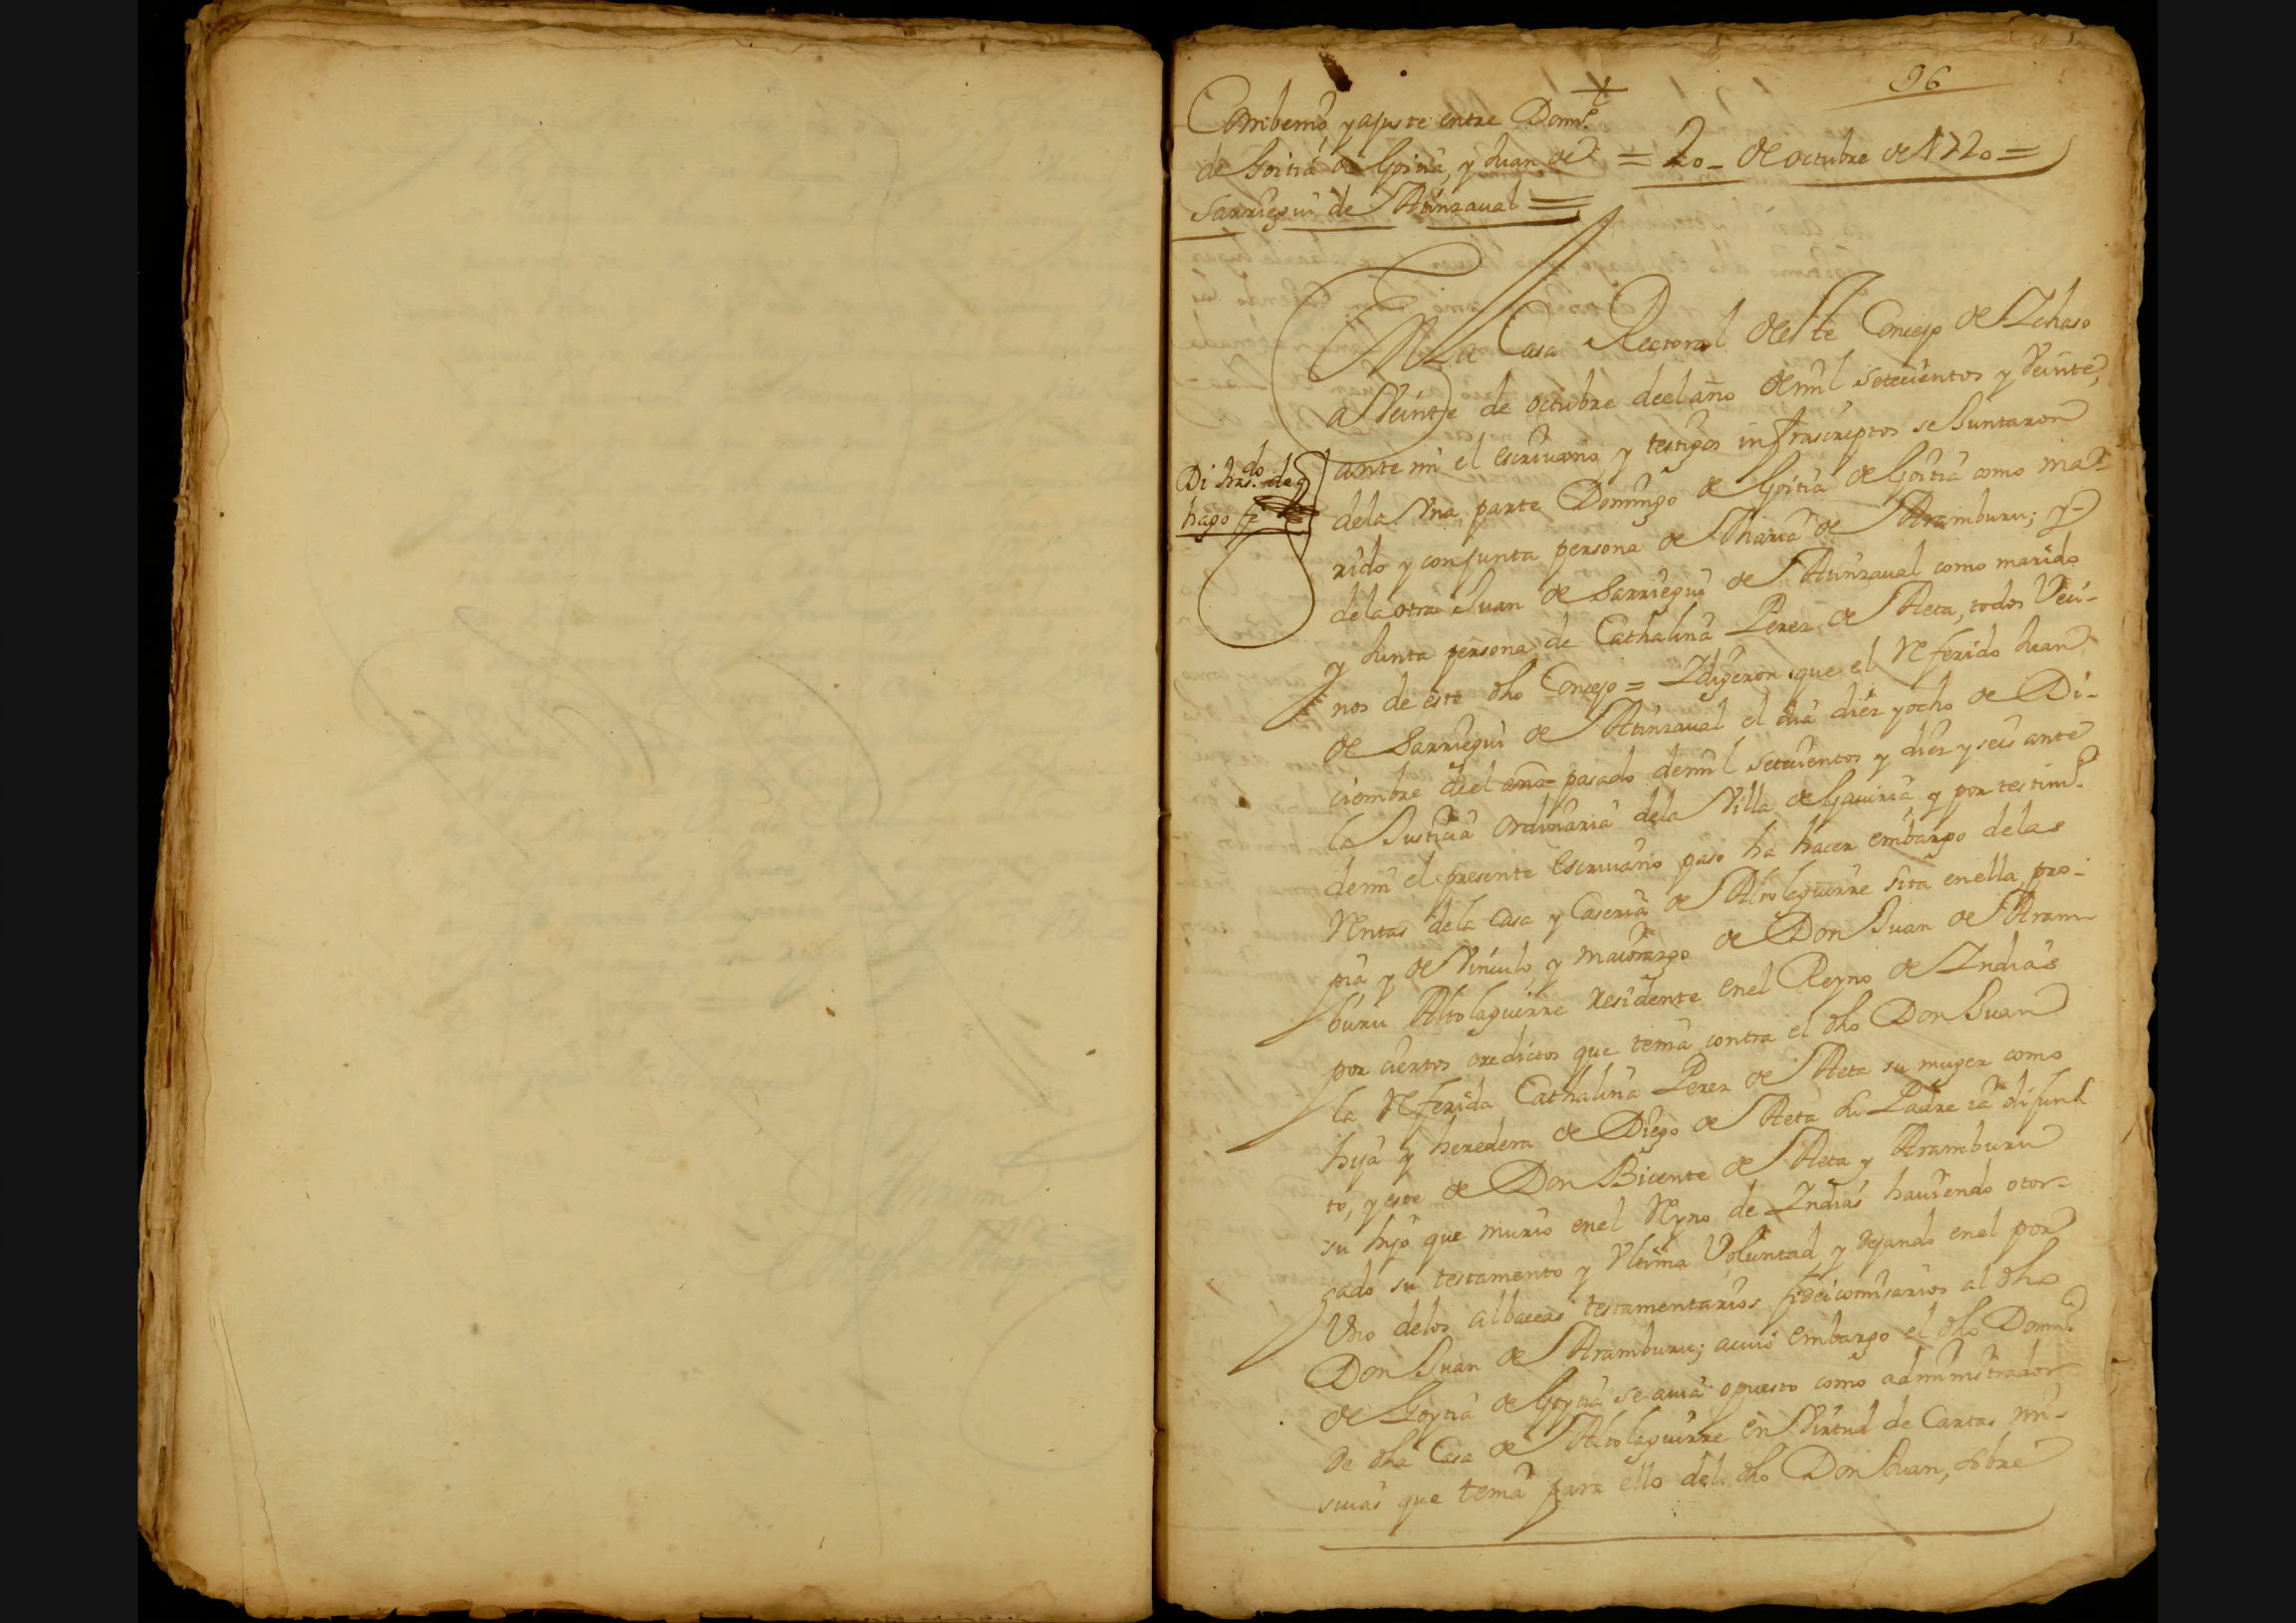 96
Combenio y ajuste entre Domº
de Goitia de Goitia, y Juan de = 20 - de octubre de 1720 =
Sarriegui de Atinzaual =
En La Casa Rectoral deeste Concejo de Ichaso
a Veinte de octubre deel año demil setecientos y Veinte,
ante mi el escriuano y testigos infrascriptos se Juntaron
dela Vna parte Domingo de Goitia de Goitia como ma-
rido y conjunta persona de Maria de Aramburu; y
dela otra Juan de Sarriegui de Atinzaual como marido
y Junta persona de Cathalina Perez de Aeta, todos Veci-
nos de este dho Concejo = I digeron que el Referido Juan
de Sarriegui de Atinzaual el dia diez y ocho de Di-
ciembre deel año pasado demil setecientos y diez y seis ante
la Justicia ordinaria dela Villa de Gauiria y por testimº
demi el presente Escriuano paso ha hacer embargo delas
Rentas dela Casa y Caseria de Altolaguirre sita enella pro-
pia y de Vinculo y maiorazgo de Don Juan de Aram-
buru Altolaguirre residente enel Reyno de Indias
por ciertos credictos que tenia contra el dho Don Juan
la Referida Cathalina Perez de Aeta su muger como
hija y heredera de Diego de Aeta su Padre ia difun-
to, y este de Don Bicente de Aeta y Aramburu
su hijo que murio enel Reyno de Indias hauiendo otor-
gado su testamento y Vltima Voluntad y dejando enel por
Vno delos albaceas testamentarios fideicomisarios al dho
Don Juan de Aramburu; acuio embargo el dho Domº
de Goytia de Goytia se auia opuesto como administrador
de dha Casa de Altolaguirre en Virtud de Cartas mi-
siuas que tenia para ello del dho Don Juan, sobre
Di tras.do de q
hago fe